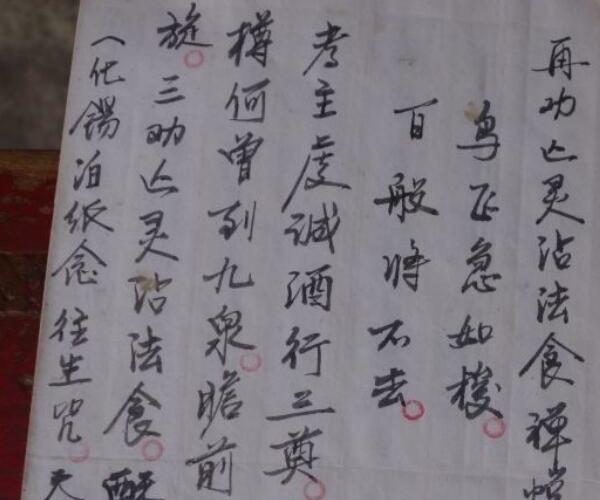 再劝亡灵沾法食禅
鸟飞急如梭
百般将不去
考主虔诚酒行三奠
樽何曾到九泉瞻前
旋三劝亡灵沾法食酹
（化锡泊纸念往生咒天